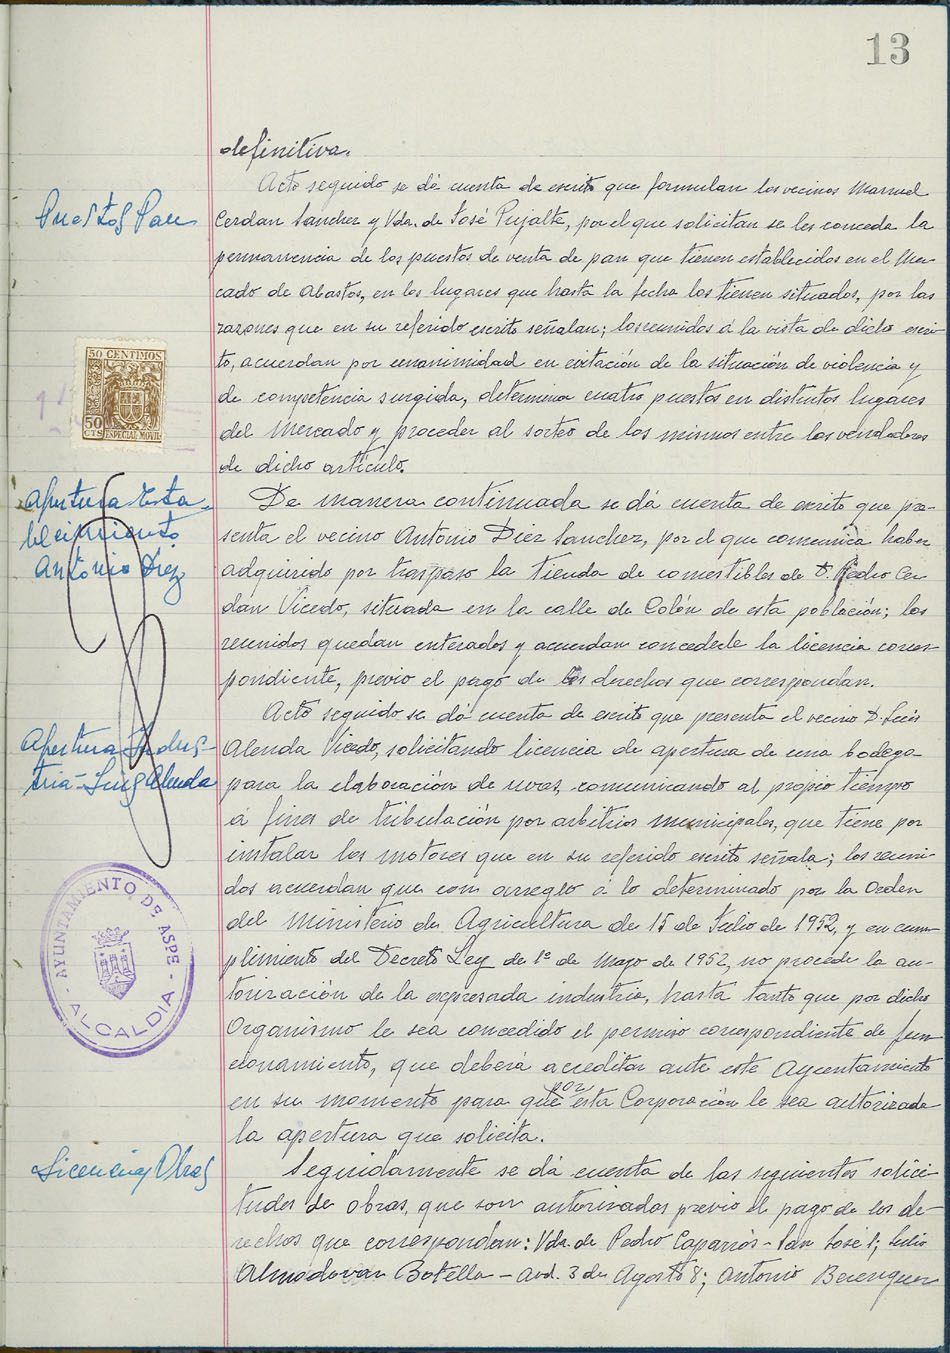 13
definitiva.
Acto seguido se dá cuenta de escrito que formulan los vecinos Manuel
Puestos Pan
Cerdan Sanchez y Vda. de José Pujalte, por el que solicitan se les conceda la
permanencia de los puestos de venta de pan que tienen establecidos en el Mer-
cado de Abastos, en los lugares que hasta la fecha los tienen situados, por las
razones que en su referido escrito señalan; los reunidos á la vista de dicho escri-
to, acuerdan por unanimidad en evitación de la situación de violencia y
de competencia surgida, determinar cuatro puestos en distintos lugares
del Mercado y proceder al sorteo de los mismos entre los vendedores
de dicho artículo.
50 CENTIMOS
50 CTS
ESPECIAL MOVIL
Apertura Esta-
blecimiento
Antonio Diez
De manera continuada se dá cuenta de escrito que pre-
senta el vecino Antonio Diez Sanchez, por el que comunica haber
adquirido por traspaso la tienda de comestibles de D. Pedro Cer-
dan Vicedo, situada en la calle de Colón de esta población; los
reunidos quedan enterados y acuerdan concederle la licencia corres-
pondiente, previo el pago de los derechos que correspondan.
Acto seguido se dá cuenta de escrito que presenta el vecino D. Luis
Apertura Indus-
tria-Luis Alenda
Alenda Vicedo, solicitando licencia de apertura de una bodega
para la elaboración de uvas, comunicando al propio tiempo
á fines de tributación por arbitrios municipales, que tiene por
instalar los motores que en su referido escrito señala; los reuni-
dos acuerdan que con arreglo á lo determinado por la Orden
del Ministerio de Agricultura de 15 de Julio de 1952, y en cum-
plimiento del Decreto Ley de 1º de Mayo de 1952, no procede la au-
torización de la expresada industria, hasta tanto que por dicho
Organismo le sea concedido el permiso correspondiente de fun-
cionamiento, que deberá acreditar ante este Ayuntamiento
en su momento para que por esta Corporación le sea autorizada
la apertura que solicita.
AYUNTAMIENTO DE ASPE
ALCALDIA
Licencias Obras
Seguidamente se dá cuenta de las siguientes solici-
tudes de obras, que son autorizadas previo el pago de los de-
rechos que correspondan: Vda. de Pedro Caparrós - San José 1; Julio
Almodovar Botella - Avd. 3 de Agosto 8; Antonio Berenguer